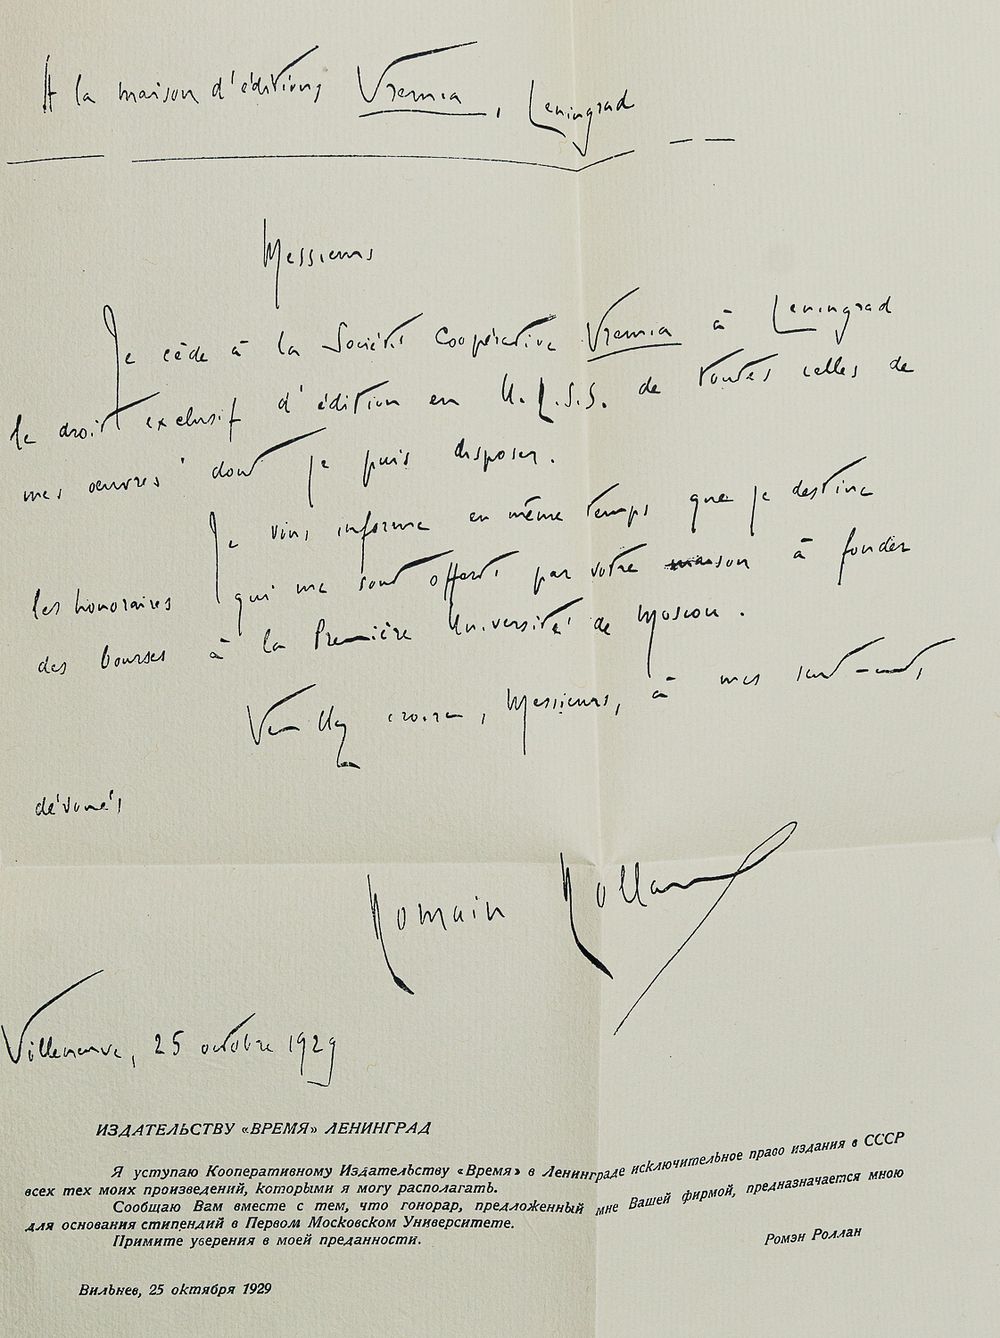 A la maison d'éditions Vremia, Leningrad
Messieurs
Je cède à la Société Coopérative Vremia à Leningrad
le droit exclusif d'édition en U.R.S.S. de toutes celles de
mes œuvres dont je puis disposer.
Je vous informe en même temps que je destine
les honoraires qui me sont offerts par votre maison à fonder
des bourses à la Première Université de Moscou.
Veuillez croire, Messieurs, à mes sentiments
dévoués
Romain Rolland
Villeneuve, 25 octobre 1929
ИЗДАТЕЛЬСТВУ «ВРЕМЯ» ЛЕНИНГРАД
Я уступаю Кооперативному Издательству «Время» в Ленинграде исключительное право издания в СССР
всех тех моих произведений, которыми я могу располагать.
Сообщаю Вам вместе с тем, что гонорар, предложенный мне Вашей фирмой, предназначается мною
для основания стипендий в Первом Московском Университете.
Примите уверения в моей преданности.
Ромэн Роллан
Вильнев, 25 октября 1929